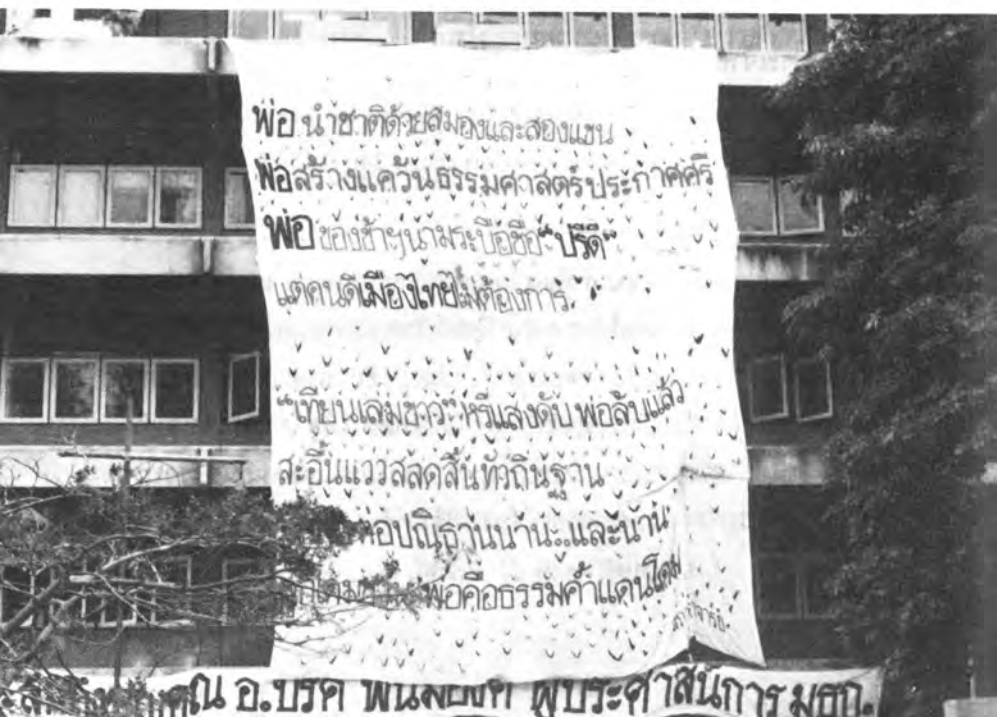 พ่อ นำชาติด้วยสมองและสองแขน
พ่อสร้างแคว้นธรรมศาสตร์ประกาศศรี
พ่อ ของข้าฯนามระบือชื่อ“ปรีดี”
แต่คนดีเมืองไทยไม่ต้องการ.
“เทียนเล่มขาว” หรี่แสงดับ พ่อลับแล้ว
สะอื้นแววสลดสิ้นทั่วถิ่นฐาน
ปณิธานนาน..และนาน
พ่อคือธรรมค้ำแดนโดม
คุณ อ.ปรีดี พนมยงค์ ผู้ประศาสน์การ มธก.